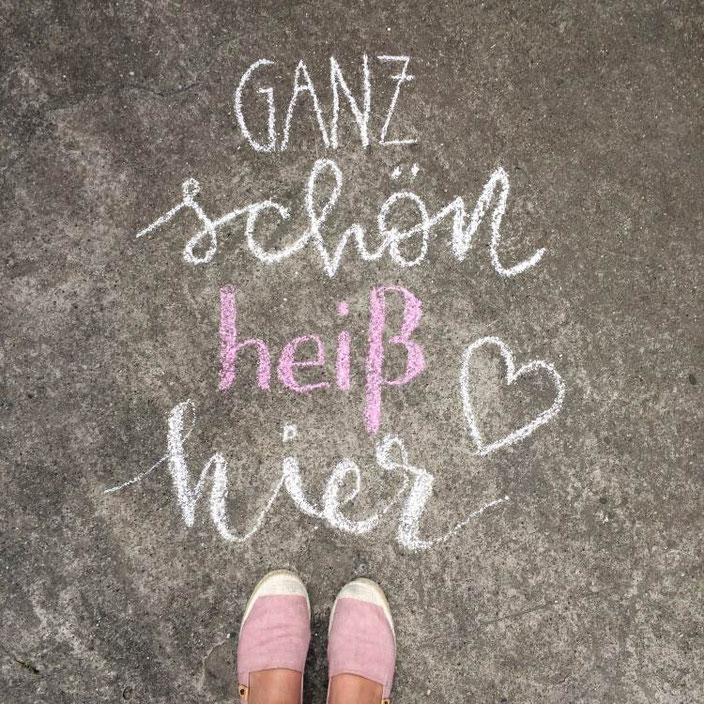 GANZ
schön
heiß
hier